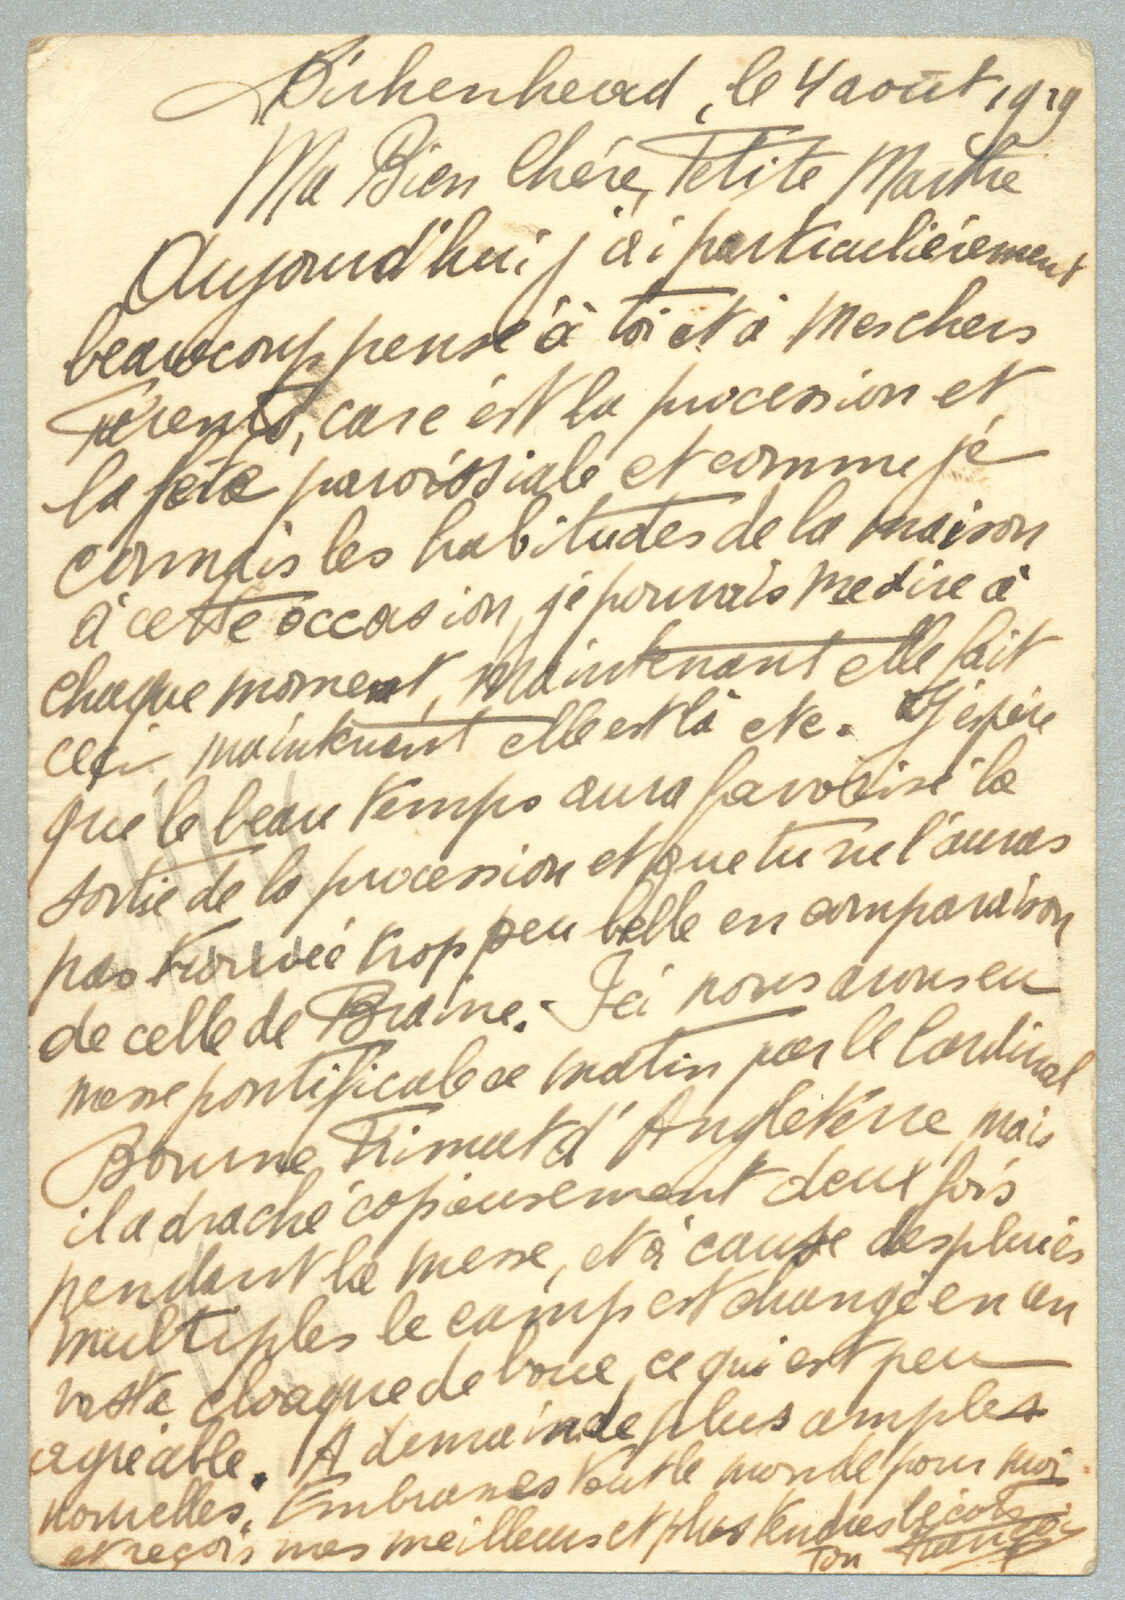 Birkenhead, le 4 août 1929
Ma Bien Chére, Petite Marthe
Aujourd'hui j'ai particulièrement
beaucoup pensé à toi et à mes chers
Parents, car c'est la procession et
la fête paroissiale et comme je
connais les habitudes de la maison
à cette occasion, je pouvais me dire à
chaque moment, maintenant elle fait
ceci, maintenant elle est là etc. J'espère
que le beau temps aura favorisé la
sortie de la procession et que tu ne l'auras
pas trouvée trop peu belle en comparaison
de celle de Braine. - Ici nous avons eu
messe pontificale ce matin par le Cardinal
Bourne, Primat d'Angleterre, mais
il a draché copieusement deux fois
pendant la messe, et à cause des pluies
multiples le camp est changé en un
vaste cloaque de boue, ce qui est peu
agréable. A demain de plus amples
nouvelles. Embrasses tout le monde pour moi
et reçois mes meilleurs et plus tendres bécots
Ton